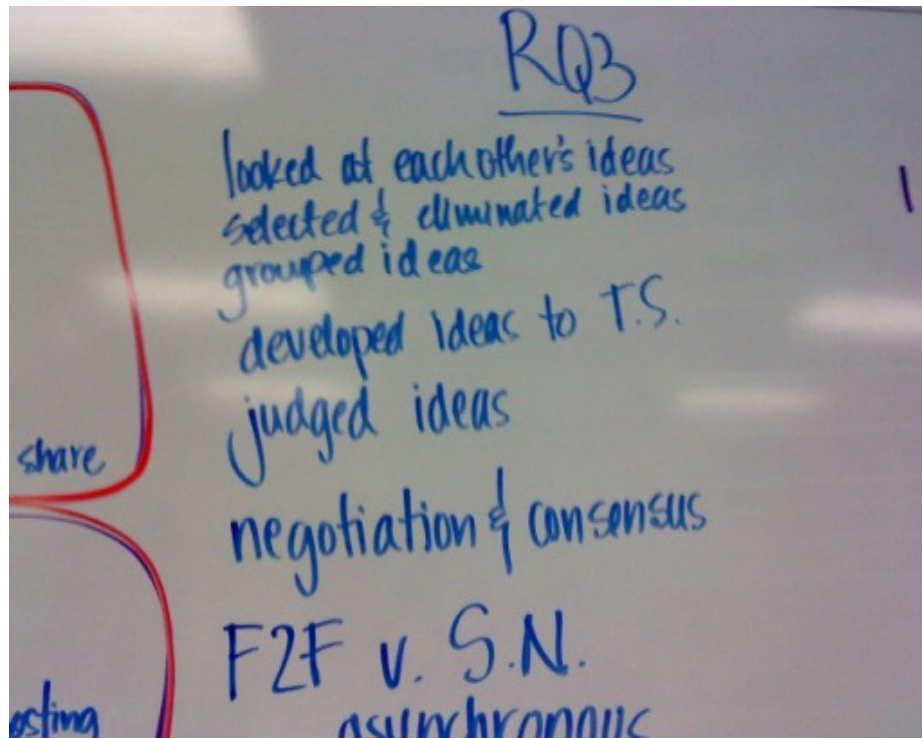 RQ3
looked at each other's ideas
selected & eliminated ideas
grouped ideas
developed ideas to T.S.
judged ideas
share
negotiation & consensus
F2F v. S.N.
osting
asynchronous